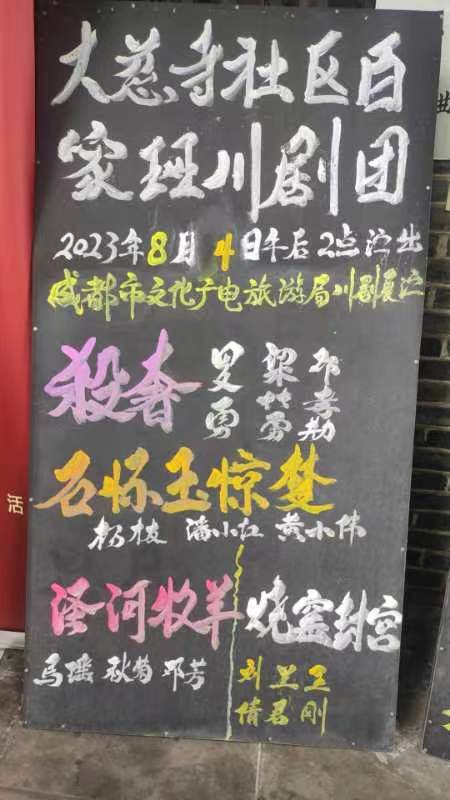 大慈寺社区百
家班川剧团
2023年8月4日午后2点演出
成都市文化广电旅游局川剧展演
殺奢
罗勇 梁
石怀玉惊梦
杨枝 潘小红 黄小伟
泾河牧羊 烧窑封宫
马瑶 秋菊 邓芳 刘兰 王
倩君 刚
活